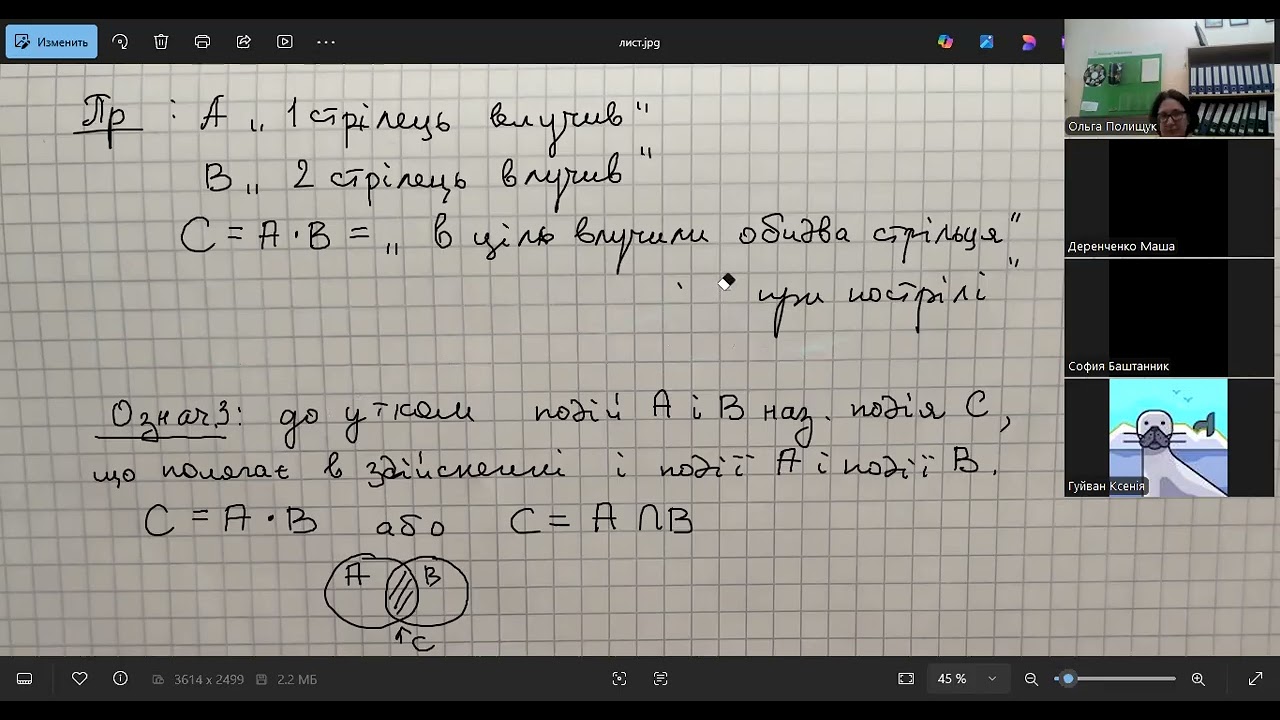 Изменить
лист.jpg
Пр : А „ 1 стрілець влучив "
В „ 2 стрілець влучив "
С = А · В = „ в ціль влучили обидва стрільця "
при пострілі "
Означ3: добутком подій А і В наз. подія С,
що полягає в здійсненні і події А і події В.
С = А · В або С = А ∩ В
А В
↑ С
Ольга Полищук
Деренченко Маша
София Баштанник
Гуйван Ксенія
3614 x 2499 2.2 МБ
45 %